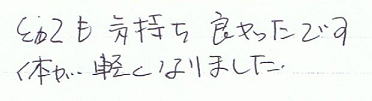 とても気持ち良かったです
体が軽くなりました。